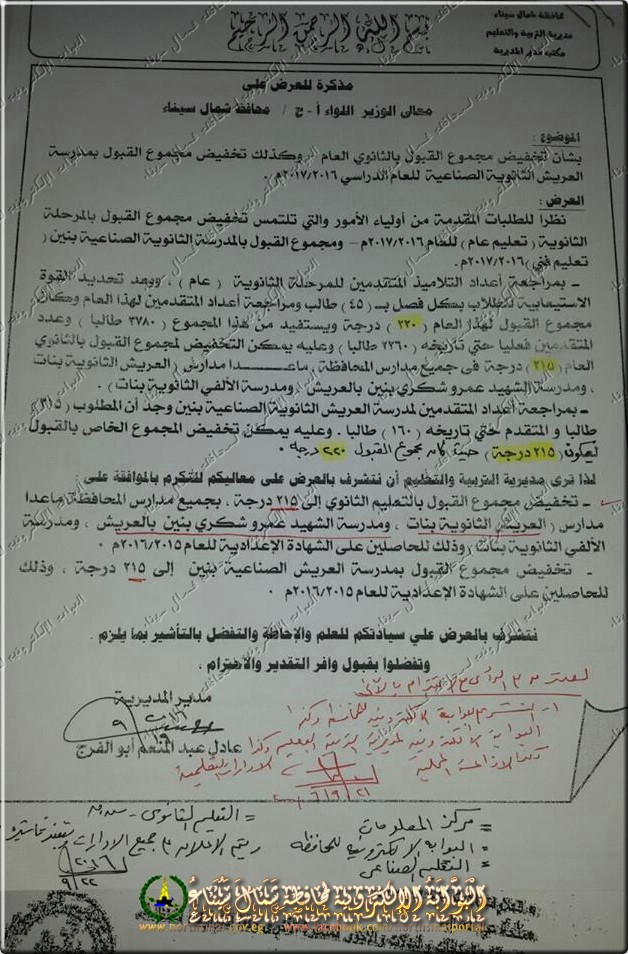 بسم الله الرحمن الرحيم
محافظة شمال سيناء
مديرية التربية والتعليم
مكتب مدير المديرية
مذكرة للعرض على
معالى الوزير اللواء أ-ح / محافظ شمال سيناء
الموضوع :
بشأن تخفيض مجموع القبول بالثانوي العام وكذلك تخفيض مجموع القبول بمدرسة
العريش الثانوية الصناعية للعام الدراسي ٢٠١٧/٢٠١٦م .
العرض :
نظراً للطلبات المقدمة من أولياء الأمور والتي تلتمس تخفيض مجموع القبول بالمرحلة
الثانوية ( تعليم عام ) للعام ٢٠١٧/٢٠١٦م – ومجموع القبول بالمدرسة الثانوية الصناعية بنين (
تعليم فني ) ٢٠١٧/٢٠١٦م.
- بمراجعة أعداد التلاميذ المتقدمين للمرحلة الثانوية ( عام ) ، وبعد تحديد القوة
الاستيعابية للطلاب بكل فصل بـ (٤٥) طالب ومراجعة أعداد المتقدمين لهذا العام وكان
مجموع القبول لهذا العام ( ٢٢٠ ) درجة ويستفيد من هذا المجموع ( ٣٧٨٠ طالبا ) وعدد
المتقدمين فعليا حتي تاريخه ( ٢٣٦٠ طالبا ) وعليه يمكن التخفيض لمجموع القبول بالثانوي
العام ( ٢١٥ ) درجة في جميع مدارس المحافظة ، ماعـــدا مدارس ( العريش الثانوية بنات
، ومدرسة الشهيد عمرو شكري بنين بالعريش ومدرسة الألفي الثانوية بنات ) .
- بمراجعة أعداد المتقدمين لمدرسة العريش الثانوية الصناعية بنين وجد أن المطلوب ( ٣١٥
طالبا و المتقدم حتي تاريخه ( ١٦٠ ) طالبا . وعليه يمكن تخفيض المجموع الخاص بالقبول
ليكون ( ٢١٥ درجة ) حيث كان مجموع القبول ٢٢٠ درجة .
لذا ترى مديرية التربية والتعليم أن نتشرف بالعرض على معاليكم للتكرم بالموافقة على
- تخفيض مجموع القبول بالتعليم الثانوي إلى ٢١٥ درجة . بجميع مدارس المحافظة ماعدا
مدارس ( العريش الثانوية بنات ، ومدرسة الشهيد عمرو شكري بنين بالعريش ، ومدرسة
الألفي الثانوية بنات ) وذلك للحاصلين على الشهادة الإعدادية للعام ٢٠١٦/٢٠١٥م .
- تخفيض مجموع القبول بمدرسة العريش الصناعية بنين إلى ٢١٥ درجة ، وذلك
للحاصلين على الشهادة الإعدادية للعام ٢٠١٦/٢٠١٥م .
نتشرف بالعرض علي سيادتكم للعلم والإحاطة والتفضل بالتأشير بما يلزم .
وتفضلوا بقبول وافر التقدير والاحترام ،
مدير المديرية
عادل عبد المنعم أبو الفرج
البوابة الالكترونية لمديرية التربية والتعليم وكذا
= مركز المعلومات
= البوابة الالكترونية للمحافظة
= التعليم الصناعى
= التعليم الثانوى
البوابة الإلكترونية لمحافظة شمال سيناء